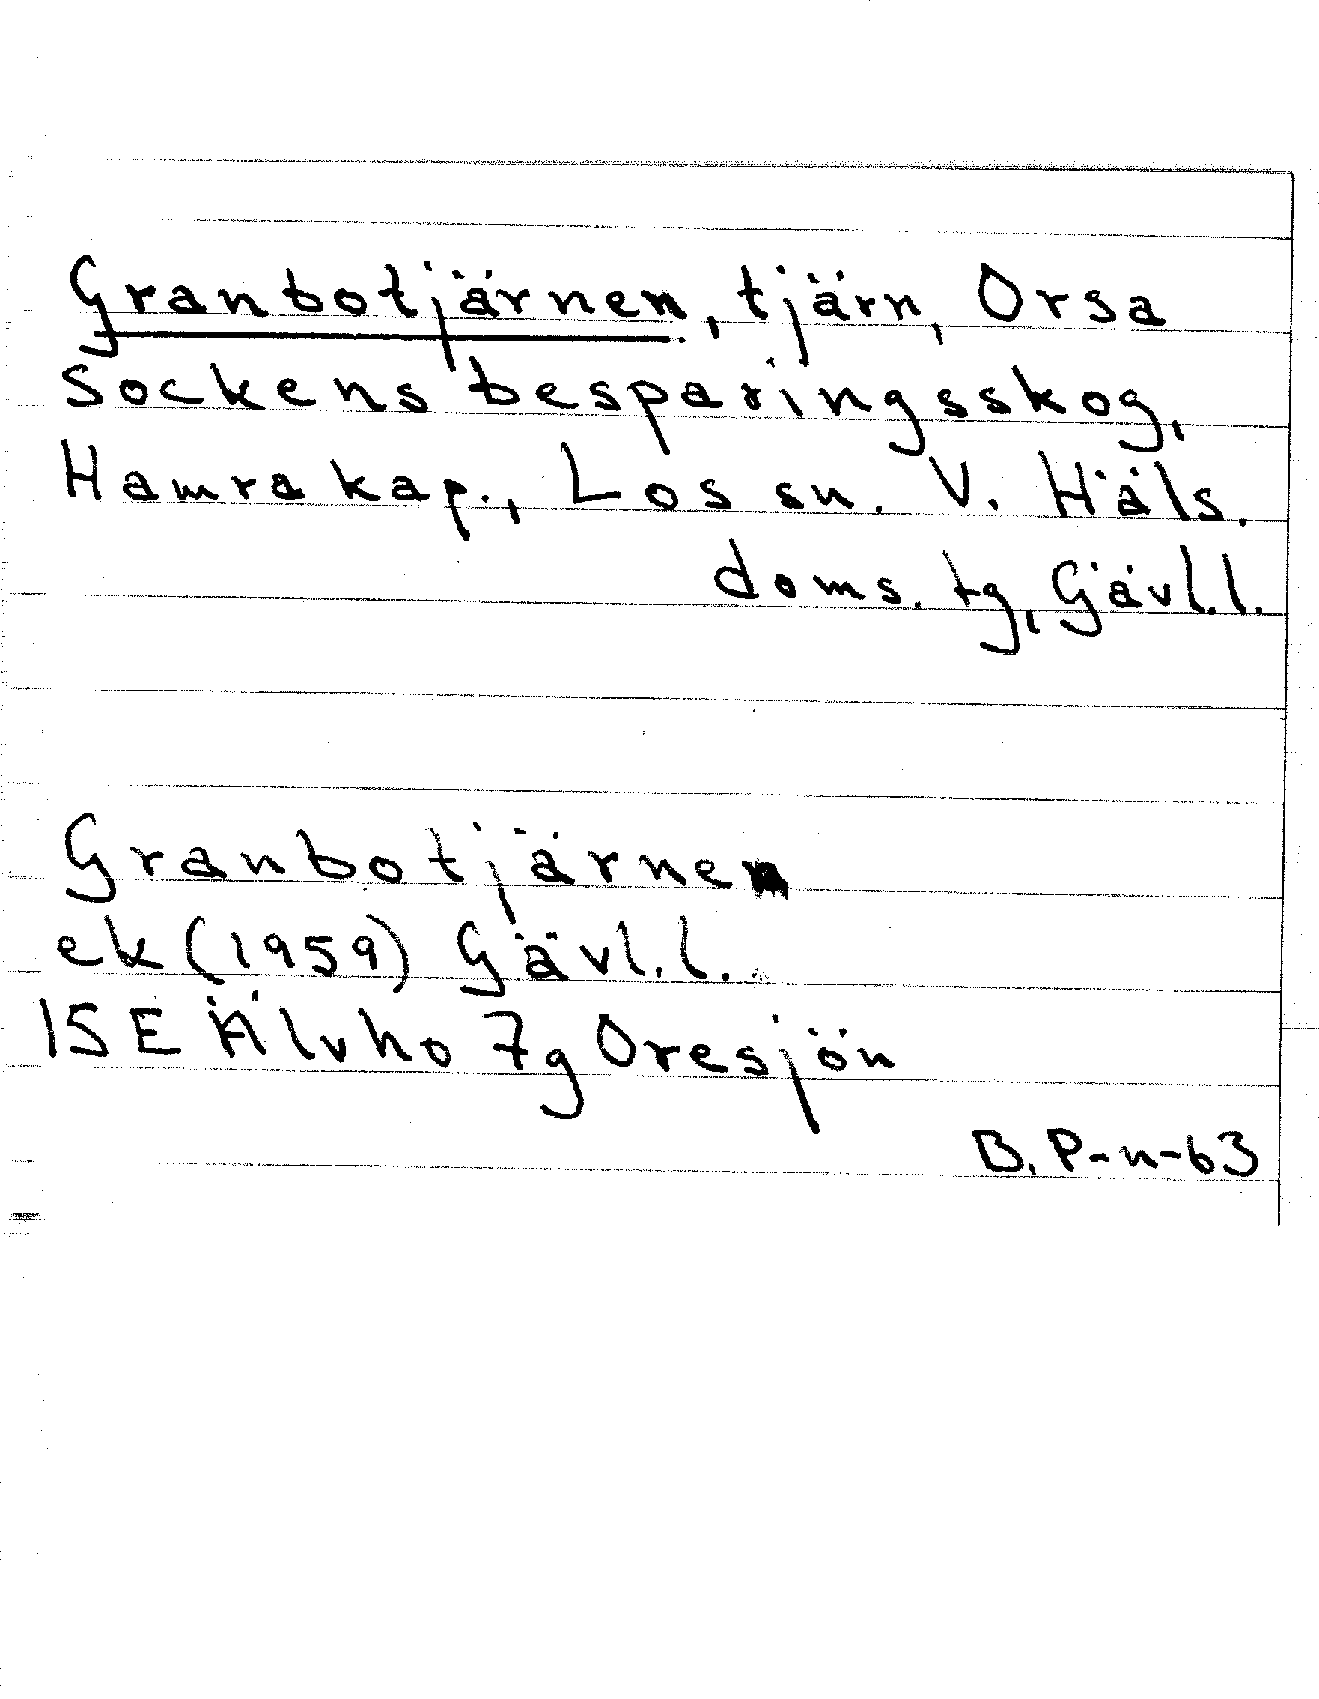 Granbotjärnen, tjärn, Orsa
Sockens besparingsskog,
Hamra kap., Los sn. V. Häls.
doms. tg, Gävl.l.
Granbotjärnen
ek (1959) Gävl.l.
15E Älvho 7g Oresjön
B. P-n-63